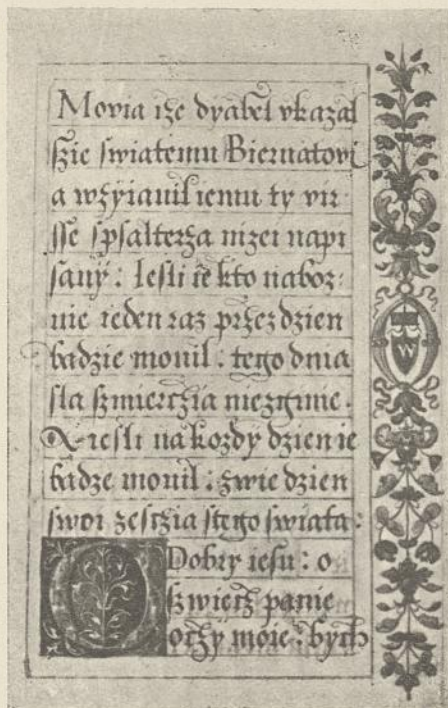 Movia ize dyabel vkazal
szie swiatemu Biernatovi
a wzyiavil iemu ty vir
sse spsalterza nizei napi
sany: Iesli ie kto naboz
nie ieden raz przez dzien
badzie movil: tego dnia
sla szmierczia niezginie.
A iesli nakozdy dzien ie
badze movil: zwie dzien
swoi zesczia stego swiata:
O Dobry iesu: o
szwiecz panie
oczy moie: bych
W